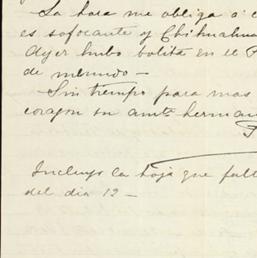 La hora me obliga á
es sofocante y Chihuahua
Ayer hubo bolita en el
de menudo —
Sin tiempo para mas
corazon su amte herman
Incluyo la hoja que falt
del dia 12 —